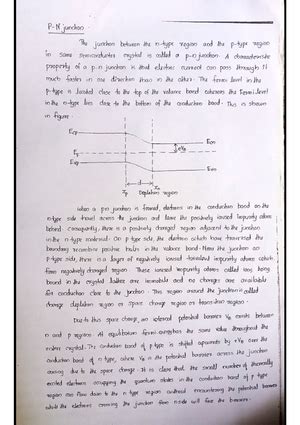 P-N junction
The junction between the n-type region and the p-type region
in same semiconductor crystal is called a p-n junction. A characteristic
property of a p-n junction is that electric current can pass through it
much faster in one direction than in the other. The fermi level in the
p-type is located close to the top of the valance band whereas the Fermi level
in the n-type lies close to the bottom of the conduction band. This is shown
in figure.
Depletion region
When a p-n junction is formed, electrons in the conduction band on the
n-type side travel across the junction and leave the positively ionised impurity atoms
behind. Consequently, there is a positively charged region adjacent to the junction
in the n-type material. On p-type side, the electron which have traversed the
boundary recombine positive holes in the valance band. Near the junction on
p-type side, there is a layer of negatively ionised impurity atoms which
form negatively charged region. These ionised impurity atoms called ions being
bound in the crystal lattice are immobile and no charges are available
for conduction close to the junction. This region around the junction is called
charge depletion region or space charge region or transition region.
Due to this space charge, an internal potential barrier VB exists between
n and p regions. At equilibrium fermi the same value throughout the
entire crystal. The conduction band of p-type is shifted upwards by eVB over the
conduction band of n-type, where VB is the potential barrier across the junction
arising due to the space charge. It is clear that the small number of thermally
excited electrons occupying the quantum states in the conduction band of p type
region can flow down to the n type region without encountering the potential barrier
while the electrons crossing the junction from side will face the barrier.